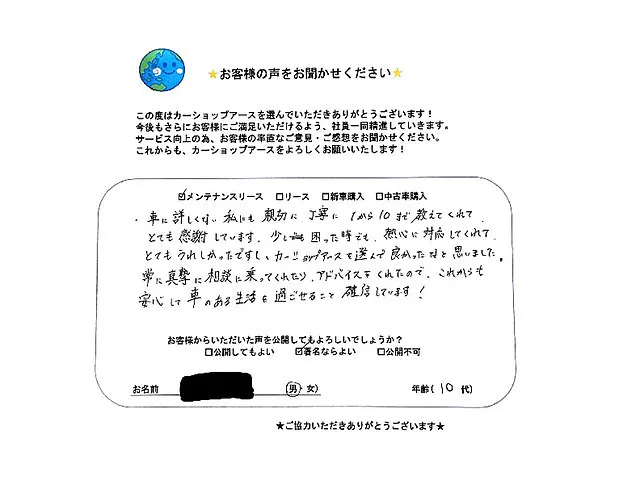 ★お客様の声をお聞かせください★
この度はカーショップアースを選んでいただきありがとうございます！
今後もさらにお客様にご満足いただけるよう、社員一同精進していきます。
サービス向上の為、お客様の率直なご意見・ご感想をお聞かせください。
これからも、カーショップアースをよろしくお願いいたします！
☑メンテナンスリース □リース □新車購入 □中古車購入
・車に詳しくない私にも親切に丁寧に1から10まで教えてくれて、
とても感謝しています。少しでも困った時でも、熱心に対応してくれて、
とてもうれしかったですし、カーショップアースを選んで良かったなと思いました。
常に真摯に相談に乗ってくれたり、アドバイスをくれたので、これからも
安心して車のある生活を過ごせること確信しています！
お客様からいただいた声を公開してもよろしいでしょうか？
□公開してもよい ☑署名ならよい □公開不可
お名前 (男・女) 年齢(10代)
★ご協力いただきありがとうございます★